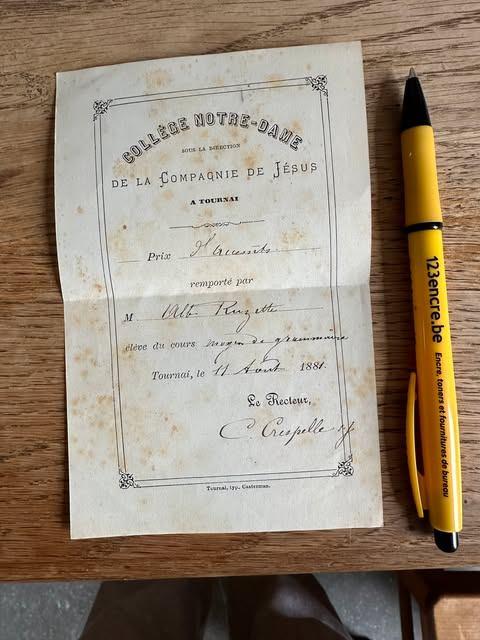 COLLÈGE NOTRE-DAME
SOUS LA DIRECTION
DE LA COMPAGNIE DE JÉSUS
A TOURNAI
Prix d'Accessits
remporté par
M Alb. Ruzette
élève du cours moyen de grammaire
Tournai, le 11 Août 1881.
Le Recteur,
C. Crespelle sj
Tournai, typ. Casterman.
123encre.be
Encre, toners et fournitures de bureau